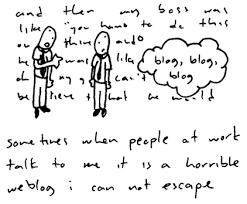 and then my boss was
like "you have to do this
thing and
he was like
oh my g can't
believe that he would
blog, blog,
blog
sometimes when people at work
talk to me it is a horrible
weblog i can not escape